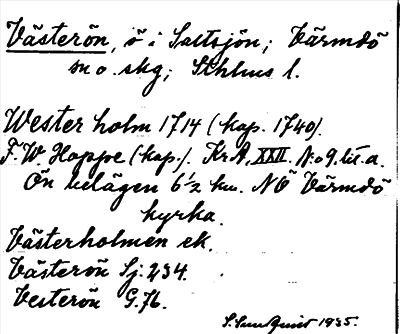 Västerön, ö i Saltsjön; Värmdö
sn o. skg; Sthlms l.
Westerholm 1714 (kap. 1740).
F. W. Hoppe (kap.). KrA, XXII. No 9. lit. a.
Ön belägen 6 1/2 km. NÖ Värmdö
kyrka.
Västerholmen ek.
Västerön Sj. 234.
Vesterön G. 76.
S. Sundquist 1935.